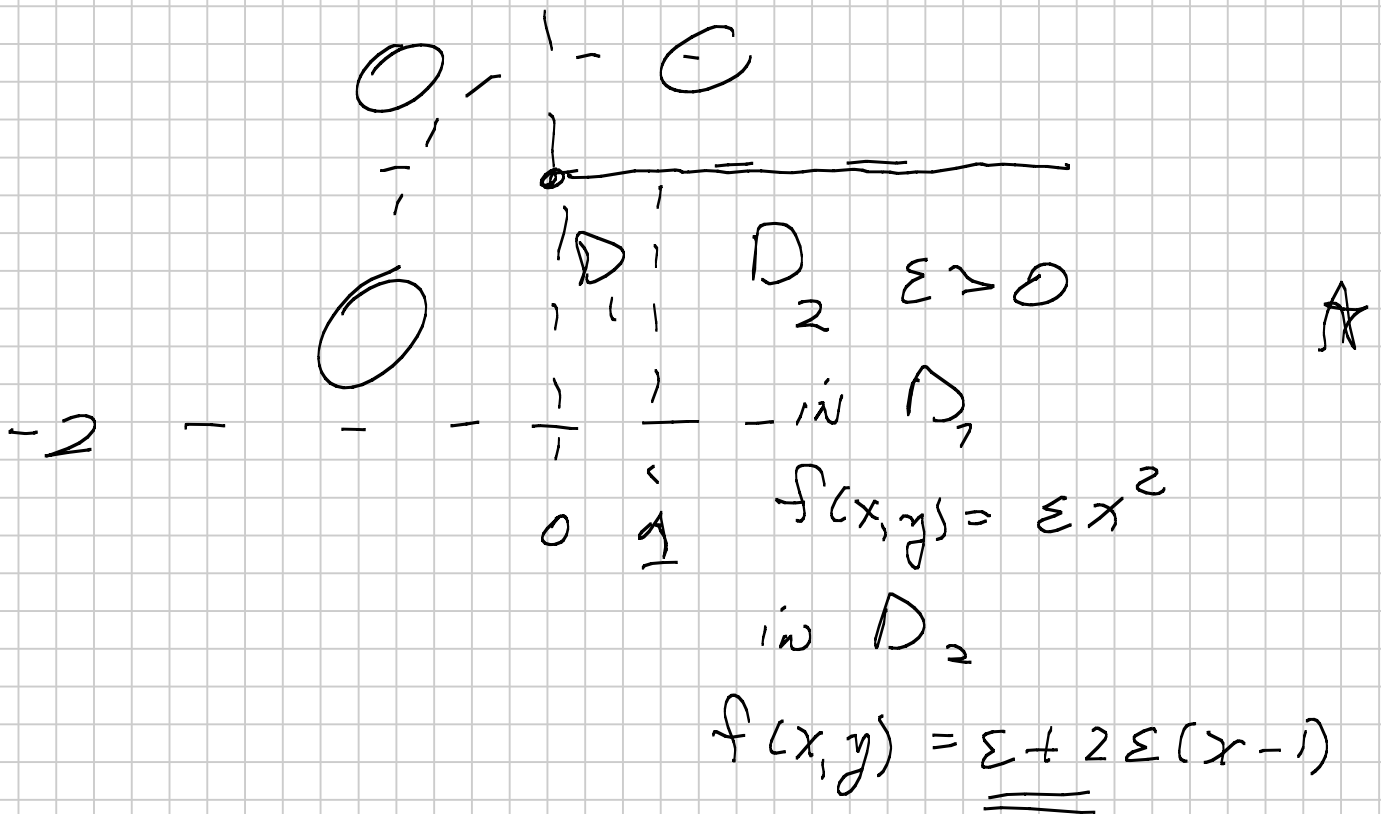 0
D₁ D₂ ε > 0
A
-2
in D₁
0 1
f(x,y) = εx²
in D₂
f(x,y) = ε + 2ε(x-1)